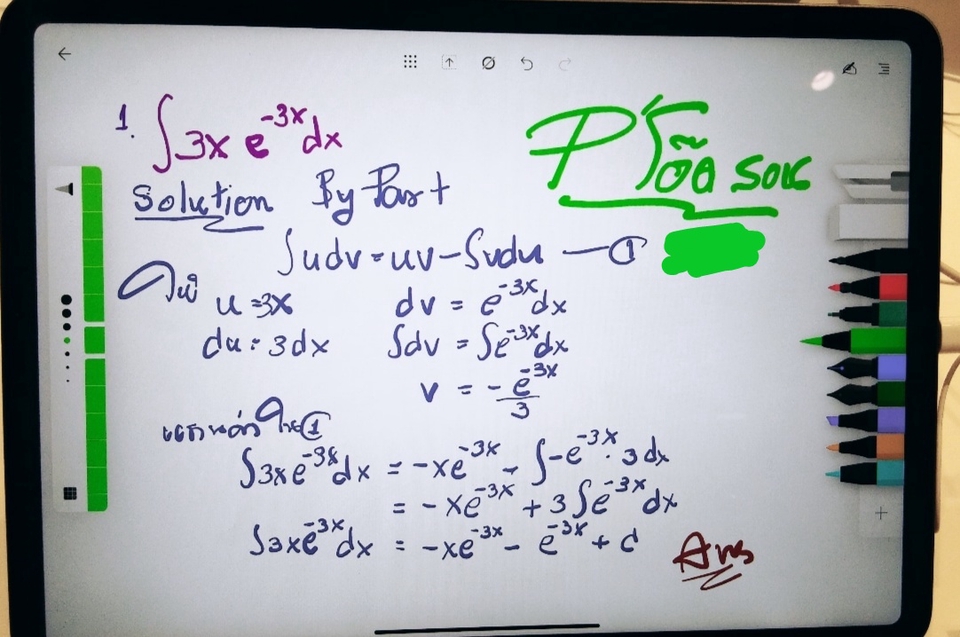 1. ∫3x e^{-3x} dx
Solution By Part
∫udv = uv - ∫vdu —①
ให้ u = 3x dv = e^{-3x} dx
du = 3dx ∫dv = ∫e^{-3x} dx
v = -e^{-3x}/3
แทนค่าใน ①
∫3xe^{-3x} dx = -xe^{-3x} - ∫-e^{-3x} · 3dx
= -xe^{-3x} + 3∫e^{-3x} dx
∫3xe^{-3x} dx = -xe^{-3x} - e^{-3x} + c Ans